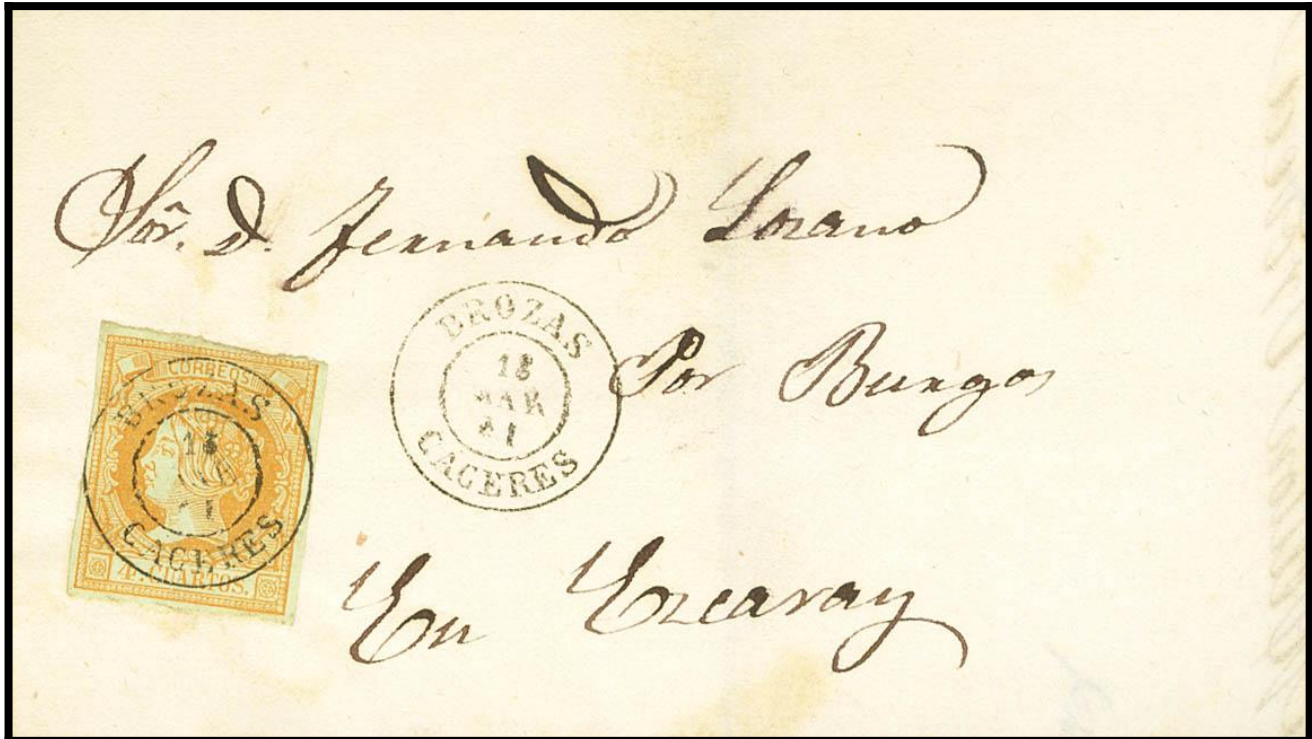 Sor. D. Fernando Lozano
BROZAS
CACERES
Por Burgos
CORREOS
BROZAS
CACERES
4 CUARTOS.
En Ezcaray